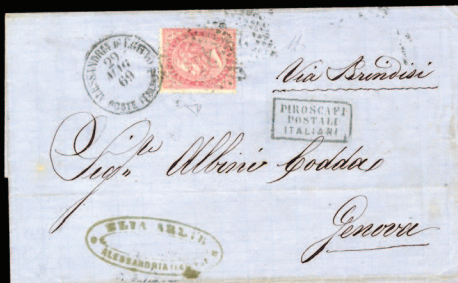 ALESSANDRIA D'EGITTO
29
69
POSTE ITALIANE
Via Brindisi
PIROSCAFI
POSTALI
ITALIANI
Sig.re Albino Coddae
Genova
ELIA
ALESSANDRIA